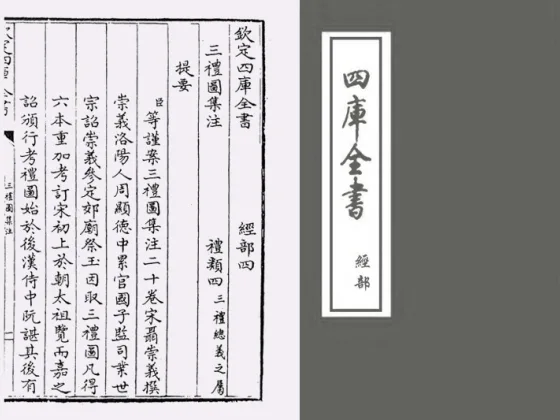 四庫全書
經部
欽定四庫全書 經部四
三禮圖集注 禮類四 三禮總義之屬
提要
臣等謹案三禮圖集注二十卷宋聶崇義撰
崇義洛陽人周顯德中累官國子監司業世
宗詔崇義參定郊廟祭玉因取三禮圖凡得
六本重加考訂宋初上於朝太祖覽而嘉之
詔頒行考禮圖始於後漢侍中阮諶其後有
三禮圖集注